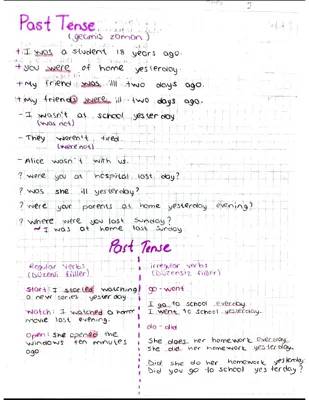 Past Tense
(geçmiş zaman)
+ I was a student 18 years ago.
+ you were at home yesterday
+ My friend was ill two days ago.
+ My friends were ill two days ago.
- I wasn't at school yesterday
(was not)
- They weren't tired.
(were not)
- Alice wasn't with us.
? were you at hospital last day?
? was she ill yesterday?
? were your parents at home yesterday evening?
? where were you last Sunday?
~ I was at home last Sunday
Past Tense
Regular verbs
(düzenli fiiller)
Start: I started watching
a new series yesterday
Watch: I watched a horror
movie last evening.
Open: She opened the
windows ten minutes
ago
irregular verbs
(düzensiz fiiller)
go - went
I go to school everyday
I went to school yesterday.
do - did
She does her homework everyday
She did her homework yesterday.
Did she do her homework yesterday
Did you go to school yesterday?